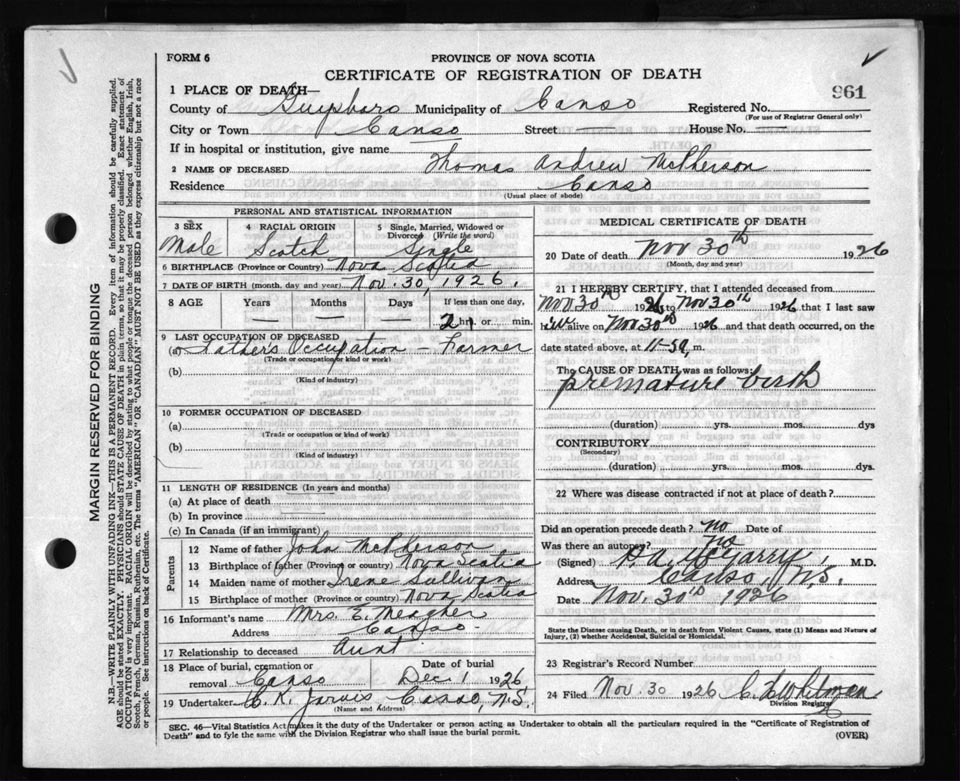 FORM 6
PROVINCE OF NOVA SCOTIA
CERTIFICATE OF REGISTRATION OF DEATH
961
1 PLACE OF DEATH—
County of Guysboro Municipality of Canso Registered No.
(For use of Registrar General only)
City or Town Canso Street — House No. —
If in hospital or institution, give name
2 NAME OF DECEASED Thomas Andrew McPherson
Residence Canso
(Usual place of abode)
PERSONAL AND STATISTICAL INFORMATION
3 SEX Male
4 RACIAL ORIGIN Scotch
5 Single, Married, Widowed or Divorced (Write the word) Single
6 BIRTHPLACE (Province or Country) Nova Scotia
7 DATE OF BIRTH (month, day and year) Nov. 30, 1926.
8 AGE Years Months Days If less than one day,
— — — 2 hr. or min.
9 LAST OCCUPATION OF DECEASED
(a) Father's Occupation – Farmer
(Trade or occupation or kind of work)
(b)
(Kind of industry)
10 FORMER OCCUPATION OF DECEASED
(a)
(Trade or occupation or kind of work)
(b)
(Kind of industry)
11 LENGTH OF RESIDENCE (In years and months)
(a) At place of death
(b) In province
(c) In Canada (if an immigrant)
Parents
12 Name of father John McPherson
13 Birthplace of father (Province or country) Nova Scotia
14 Maiden name of mother Irene Sullivan
15 Birthplace of mother (Province or country) Nova Scotia
16 Informant's name Mrs. E. Meagher
Address Canso
17 Relationship to deceased Aunt
18 Place of burial, cremation or removal Canso Date of burial Dec 1 1926
19 Undertaker C. K. Jarvis Canso, N.S.
(Name and Address)
MEDICAL CERTIFICATE OF DEATH
20 Date of death Nov 30th 1926
(Month, day and year)
21 I HEREBY CERTIFY, that I attended deceased from
Nov 30th 1926 to Nov 30th 1926 that I last saw
him alive on Nov 30th 1926 and that death occurred, on the
date stated above, at 11-59 m.
The CAUSE OF DEATH was as follows:
premature birth
(duration) yrs. mos. dys
CONTRIBUTORY
(Secondary)
(duration) yrs. mos. dys.
22 Where was disease contracted if not at place of death?
Did an operation precede death? no Date of
Was there an autopsy? no
(Signed) P. A. McGarry, M.D.
Address Canso, N.S.
Date Nov. 30th 1926
State the Disease causing Death, or in death from Violent Causes, state (1) Means and Nature of
Injury, (2) whether Accidental, Suicidal or Homicidal.
23 Registrar's Record Number
24 Filed Nov. 30 1926 Whitman
Division Registrar
SEC. 46—Vital Statistics Act makes it the duty of the Undertaker or person acting as Undertaker to obtain all the particulars required in the "Certificate of Registration of
Death" and to fyle the same with the Division Registrar who shall issue the burial permit.
(OVER)
MARGIN RESERVED FOR BINDING
N.B.—WRITE PLAINLY WITH UNFADING INK—THIS IS A PERMANENT RECORD. Every item of information should be carefully supplied.
AGE should be stated EXACTLY. PHYSICIANS should STATE CAUSE OF DEATH in plain terms, so that it may be properly classified. Exact statement of
OCCUPATION is very important. RACIAL ORIGIN will be described by stating to what people or tongue the deceased person belonged whether English, Irish,
Scotch, French, German, Russian, Ruthenian, etc. The terms "AMERICAN" OR "CANADIAN" MUST NOT BE USED as they express citizenship but not a race
or people. See instructions on back of Certificate.